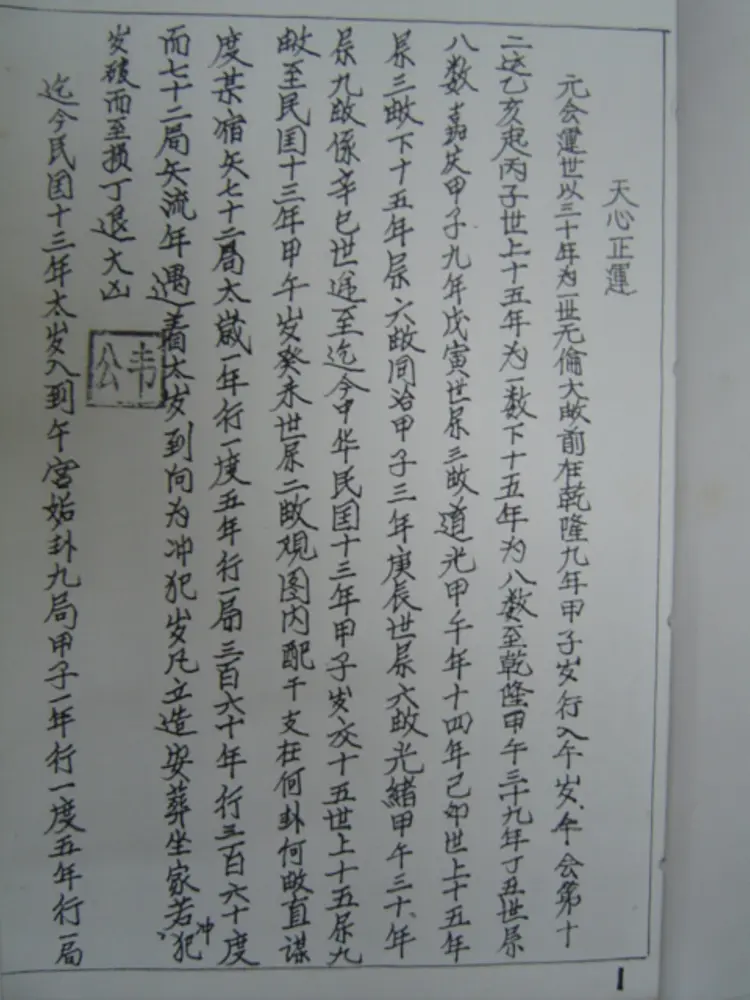 天心正運
元会運世以三十年为一世无倫大畝前在乾隆九年甲子岁行入午岁、午会第十
二运乙亥起丙子世上十五年为一数下十五年为八数至乾隆甲午三十九年丁丑世屌
八数嘉庆甲子九年戊寅世屌三畝道光甲午年十四年己卯世上十五年
屌三畝下十五年屌六畝同治甲子三年庚辰世屌六畝光緒甲午三十、年
屌九畝係辛巳世递至迄今中华民国十三年甲子岁交十五世上十五屌九
畝至民国十三年甲午岁癸未世屌二畝观图内配干支在何卦何畝直谋
度某宿矢七十二局太歲一年行一度五年行一局三百六十年行三百六十度
而七十二局矢流年遇着太岁到向为冲犯岁凡立造安葬坐家若冲犯
岁破而至损丁退大凶
迄今民国十三年太岁入到午宮姤卦九局甲子一年行一度五年行一局
韦公
1